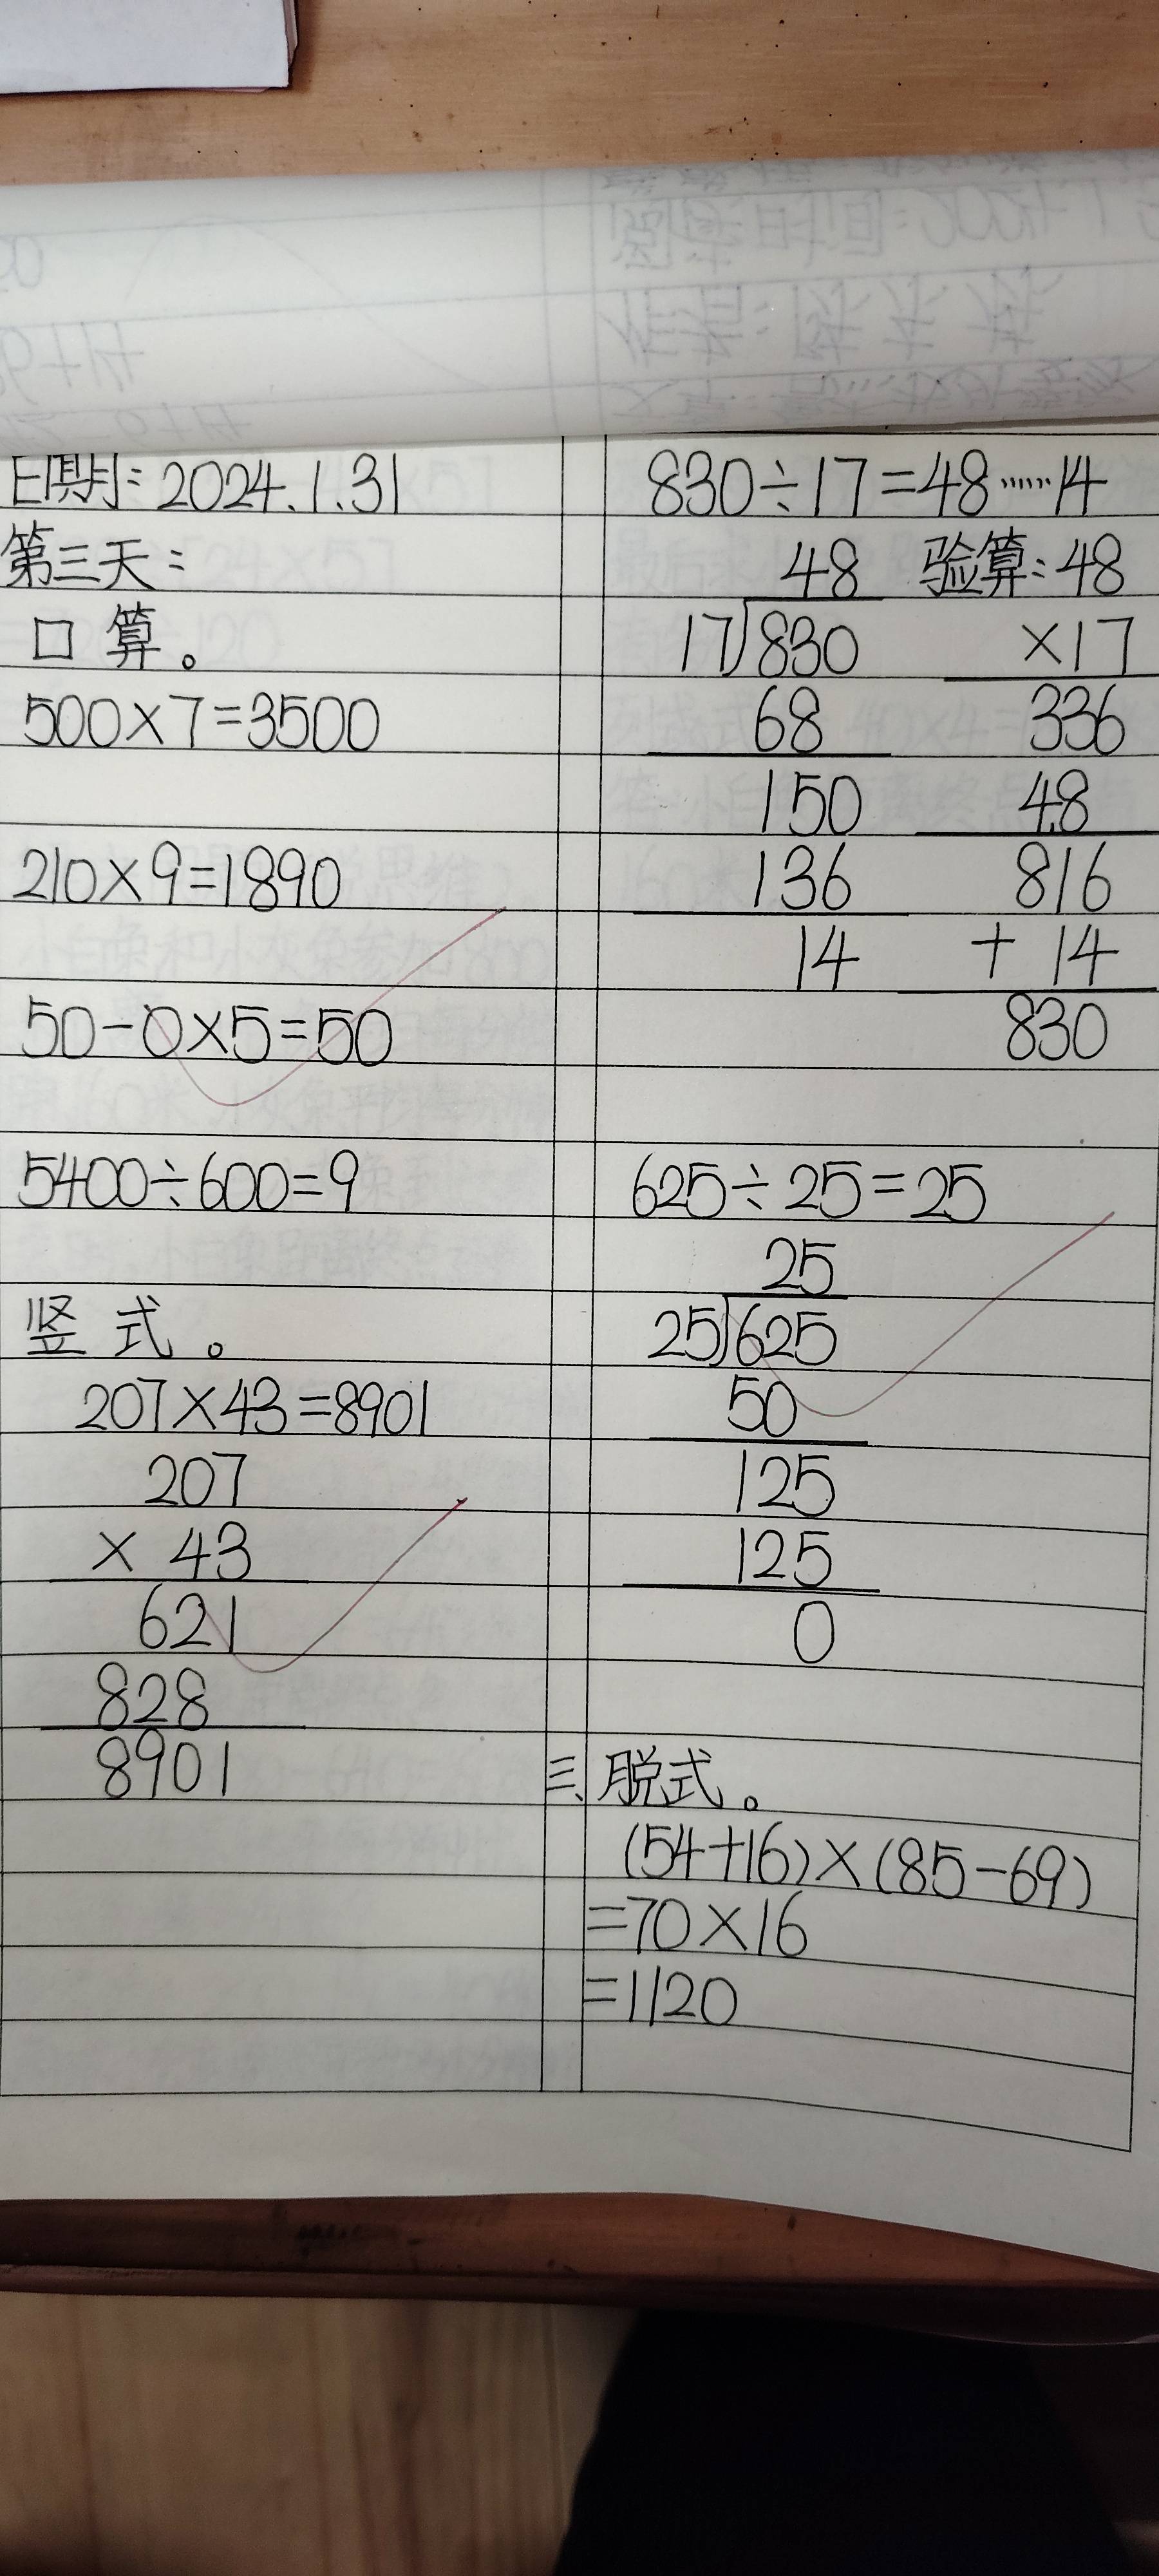 日期:2024.1.31
第三天:
口算。
500×7=3500
210×9=1890
50-0×5=50
5400÷600=9
竖式。
207×43=8901
207
× 43
621
828
8901
830÷17=48……14
48 验算:48
17)830 ×17
68 336
150 48
136 816
14 + 14
830
625÷25=25
25
25)625
50
125
125
0
三、脱式。
(54+16)×(85-69)
=70×16
=1120